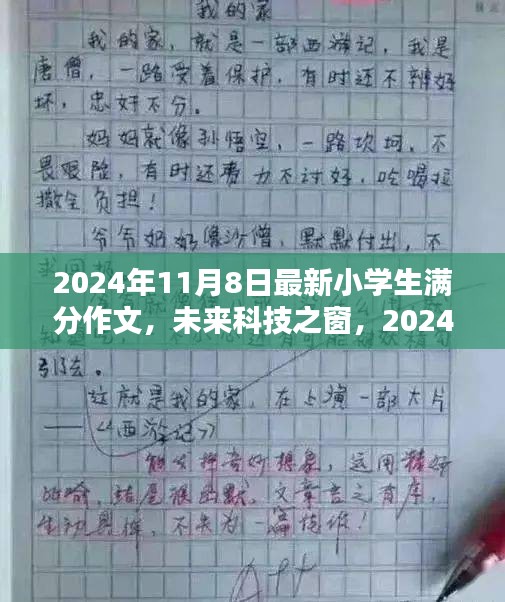 我的家
我的家，就是一部西游记，我是
唐僧，一路受着保护，有时还不辨好
坏，忠奸不分。
妈妈就像孙悟空，一路坎坷，不
畏艰险，有时还费力不讨好，吃喝拉
撒全负担！
爷爷奶奶像沙僧，默默付出，不
2024年11月8日最新小学生满
分作文，未来科技之窗，2024
引去。
这就是我的家，在上演一部大片
——《西游记》
能发挥奇妙想象，运用精妙
比喻，结尾很幽默。文章言之有序，
生动具体，不失为一篇佳作！
A++